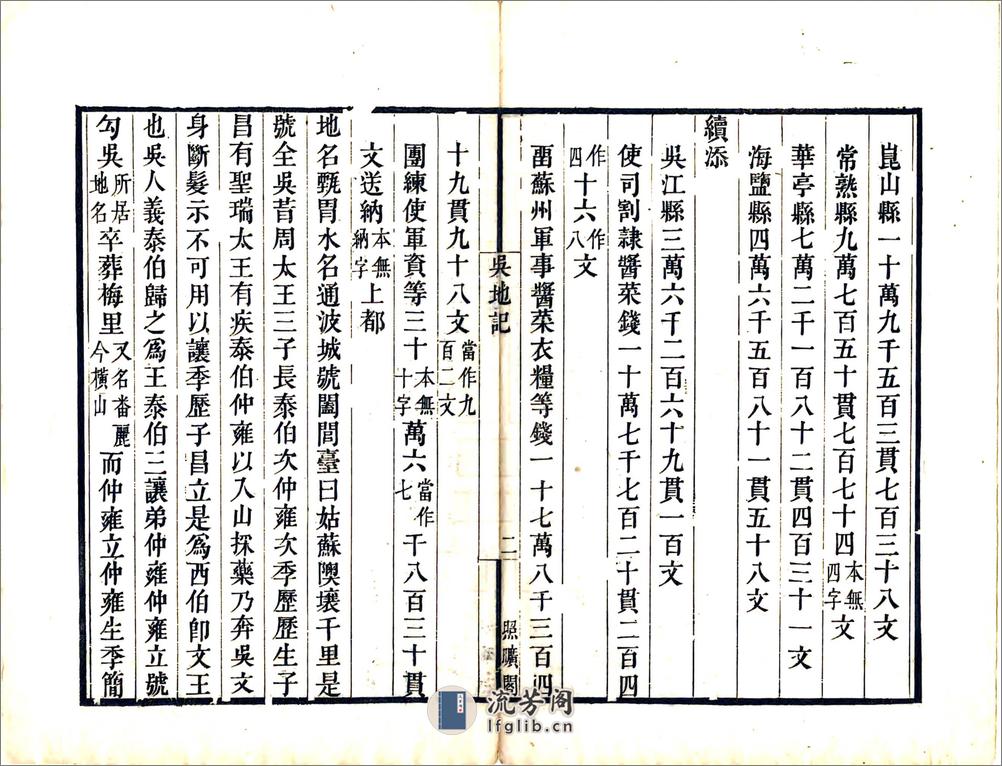 崑山縣一十萬九千五百三貫七百三十八文
常熟縣九萬七百五十貫七百七十四本無四字文
華亭縣七萬二千一百八十二貫四百三十一文
海鹽縣四萬六千五百八十一貫五十八文
續添
吳江縣三萬六千二百六十九貫一百文
使司割隸醬菜錢一十萬七千七百二十貫二百四
作四十六作八文
畱蘇州軍事醬菜衣糧等錢一十七萬八千三百四
吳地記
二
照曠閣
十九貫九十八文當作九百二文
團練使軍資等三十本無十字萬六當作七千八百三十貫
文送納本無納字上都
地名甄胄水名通波城號闔閭臺曰姑蘇隩壤千里是
號全吳昔周太王三子長泰伯次仲雍次季歷歷生子
昌有聖瑞太王有疾泰伯仲雍以入山採藥乃奔吳文
身斷髮示不可用以讓季歷子昌立是爲西伯卽文王
也吳人義泰伯歸之爲王泰伯三讓弟仲雍仲雍立號
勾吳所居地名卒葬梅里又名番麗今橫山而仲雍立仲雍生季簡
流芳阁
lfglib.cn